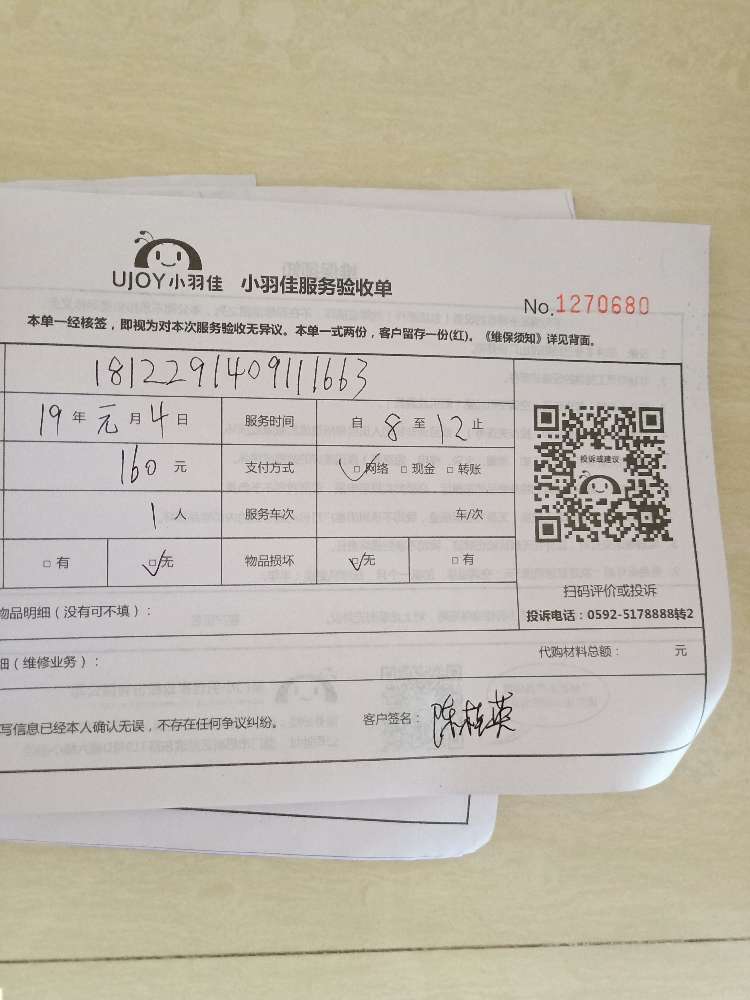 UJOY小羽佳 小羽佳服务验收单
No.1270680
本单一经核签，即视为对本次服务验收无异议。本单一式两份，客户留存一份(红)。《维保须知》详见背面。
1812291409111663
19 年 元 月 4 日 服务时间 自 8 至 12 止
160 元 支付方式 □网络 □现金 □转账
1 人 服务车次 车/次
□有 □无 物品损坏 □无 □有
投诉或建议
扫码评价或投诉
投诉电话：0592-5178888转2
物品明细（没有可不填）：
细（维修业务）： 代购材料总额： 元
写信息已经本人确认无误，不存在任何争议纠纷。 客户签名：陈桂英